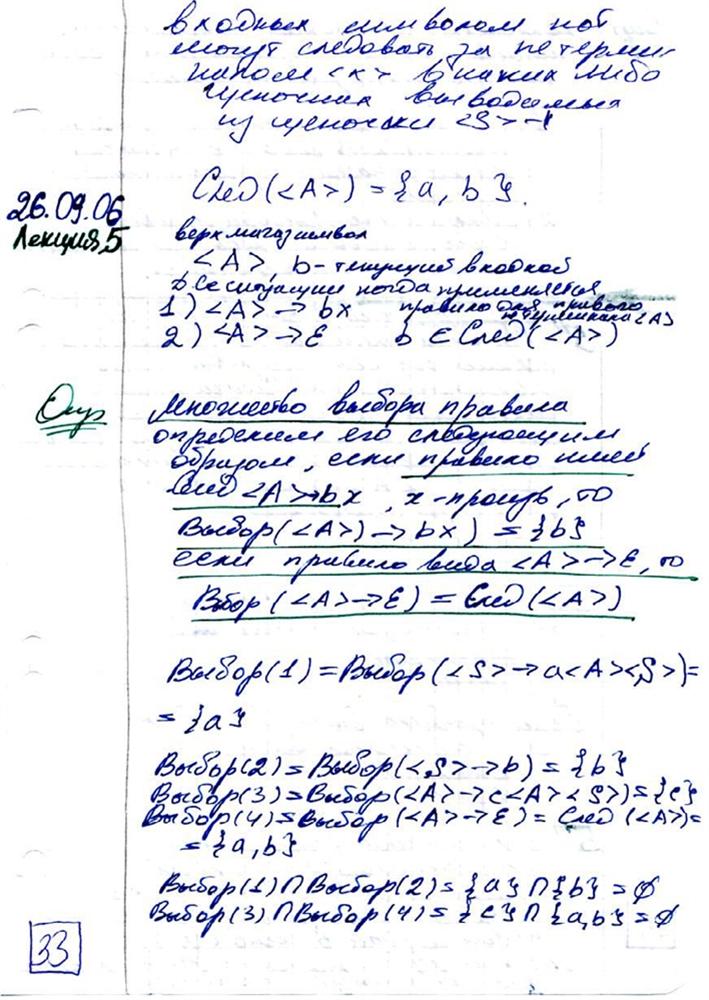 входных символом кот
могут следовать за нетерми
налом <x> в каких либо
цепочках выводимых
из цепочки <S>⊣
След(<A>) = {a, b}.
26.09.06
Лекция 5
верх магаз символ
<A>, b - текущий входной
Все ситуации когда применяется
1) <A> → bx правило для правого нетерминала <A>
2) <A> → ε b ∈ След(<A>)
Опр Множество выбора правила
определим его следующим
образом, если правило имеет
вид <A>→bx, x - произв, то
Выбор(<A>) → bx) = {b}
если правило вида <A> → ε, то
Вбор (<A>→ε) = След(<A>)
Выбор(1) = Выбор(<S> → a<A><S>) =
= {a}
Выбор(2) = Выбор(<S> → b) = {b}
Выбор(3) = Выбор(<A> → c<A><S>) = {c}
Выбор(4) = Выбор(<A> → ε) = След(<A>) =
= {a, b}
Выбор(1) ∩ Выбор(2) = {a} ∩ {b} = ∅
Выбор(3) ∩ Выбор(4) = {c} ∩ {a, b} = ∅
33